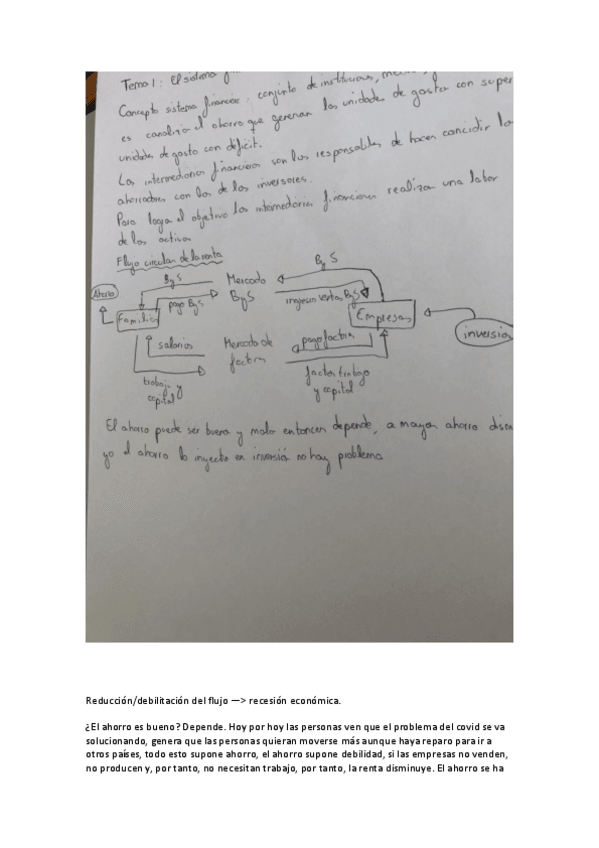 Tema 1: El sistema
Concepto sistema financiero: conjunto de instituciones,
es canalizar el ahorro que generan las unidades de gasto con super
unidades de gasto con déficit.
Los intermediarios financieros son los responsables de hacer coincidir lo
ahorradores con los de los inversores.
Para lograr el objetivo los intermediarios financieros realizan una labor
de los activos
Flujo circular de la renta
ByS
ByS
Ahorro
Mercado
ByS
pago ByS
ingresan ventas ByS
Familias
Empresas
inversión
salarios
Mercado de
factores
pago factores
trabajo y
capital
factor trabajo
y capital
El ahorro puede ser bueno y malo entonces depende, a mayor ahorro dism
yo el ahorro lo inyecto en inversión no hay problema
Reducción/debilitación del flujo —> recesión económica.
¿El ahorro es bueno? Depende. Hoy por hoy las personas ven que el problema del covid se va
solucionando, genera que las personas quieran moverse más aunque haya reparo para ir a
otros países, todo esto supone ahorro, el ahorro supone debilidad, si las empresas no venden,
no producen y, por tanto, no necesitan trabajo, por tanto, la renta disminuye. El ahorro se ha